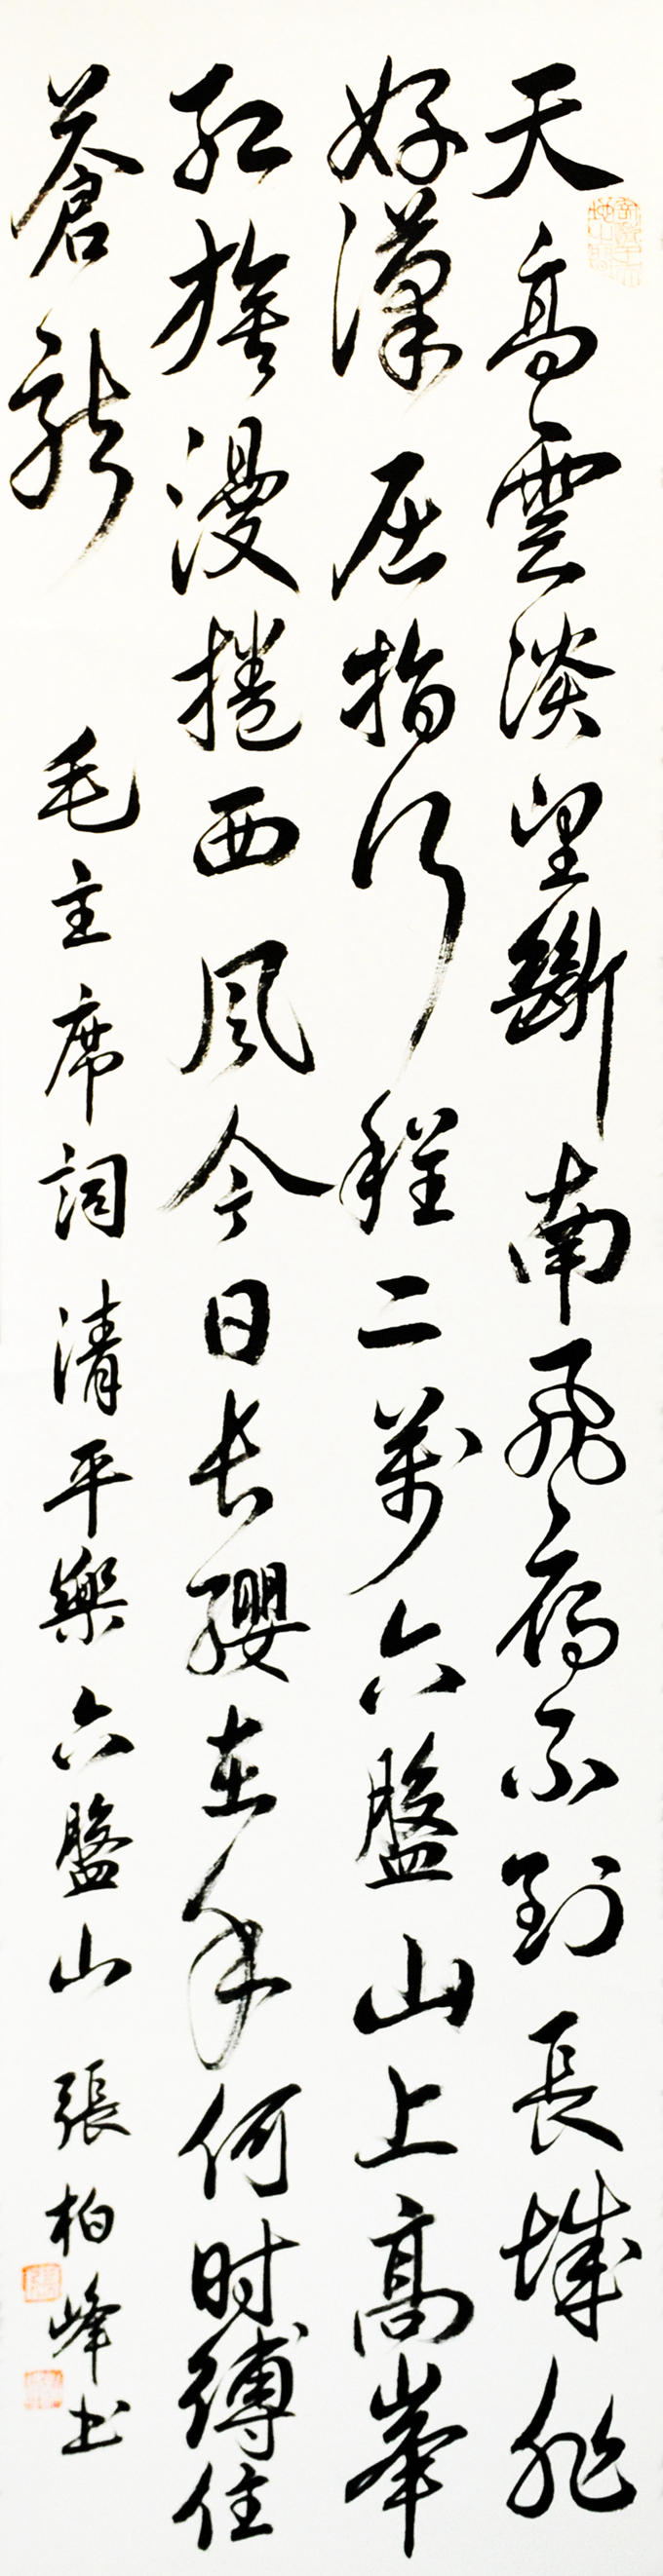 天高雲淡望斷南飛雁不到長城非
好漢屈指行程二萬六盤山上高峯
紅旗漫捲西風今日长纓在手何时縛住
蒼龍
毛主席詞清平樂六盤山 張柏峰书